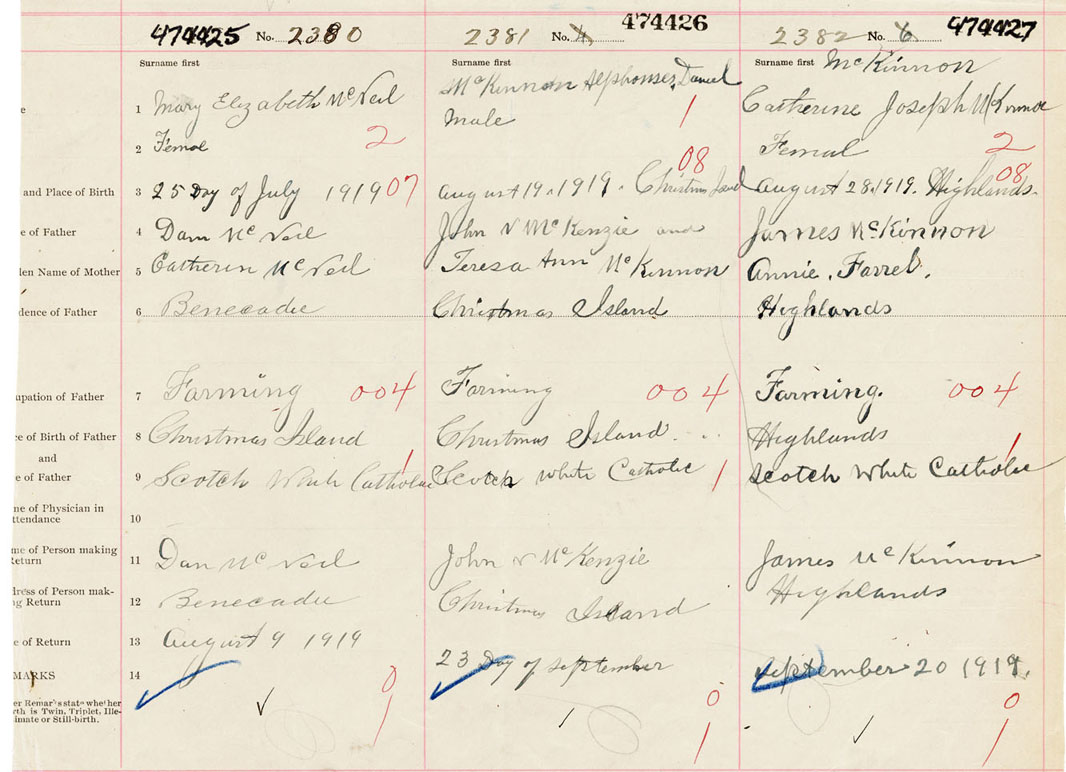 474425 No. 2380
2381 No. 4 474426
2382 No. 6 474427
Surname first
Surname first
Surname first McKinnon
e
1 Mary Elizabeth McNeil
McKinnon Alphonses, Daniel
Catherine Joseph McKinnon
2 Femal 2
Male 1
Femal 2
and Place of Birth
3 25 Day of July 1919 07
august 19, 1919. Christmas Island 08
august 28, 1919. Highlands. 08
e of Father
4 Dan McNeil
John N McKenzie and
James McKinnon
den Name of Mother
5 Catherin McNeil
Teresa Ann McKinnon
Annie. Farrel.
dence of Father
6 Benecadie
Christmas Island
Highlands
upation of Father
7 Farming 004
Farming 004
Farming. 004
ce of Birth of Father
8 Christmas Island
Christmas Island.
Highlands
and
e of Father
9 Scotch White Catholic 1
Scotch White Catholic 1
Scotch White Catholic 1
me of Physician in
ttendance
10
me of Person making
Return
11 Dan McNeil
John N McKenzie
James McKinnon
dress of Person mak-
ng Return
12 Benecadie
Christmas Island
Highlands
e of Return
13 August 9 1919
23 Day of September
September 20 1919.
MARKS
14
0
0
0
er Remarks state whether
rth is Twin, Triplet, Ille-
imate or Still-birth.
1
1
1